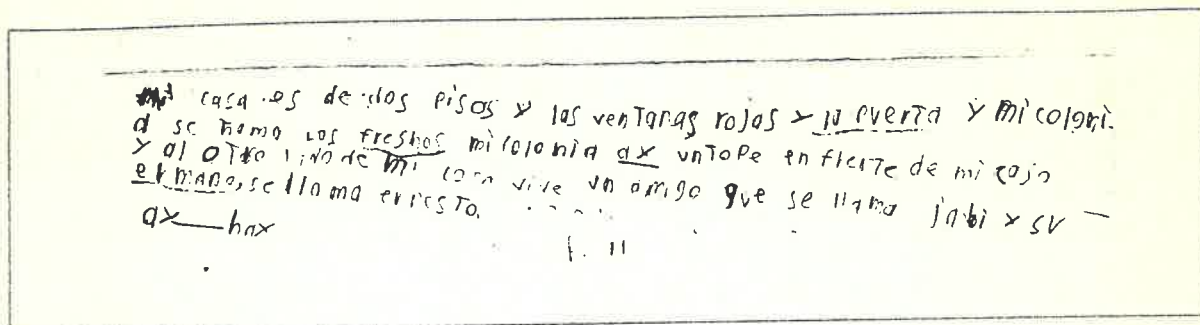 mi casa es de dos pisos y las ventanas rojas y la puerta y mi coloni.
a se llama los freshos mi colonia ax un tope en frente de mi casa
y al otro lado de mi casa vive un amigo que se llama jabi y su
ermano, se llama ernesto.
ax hax